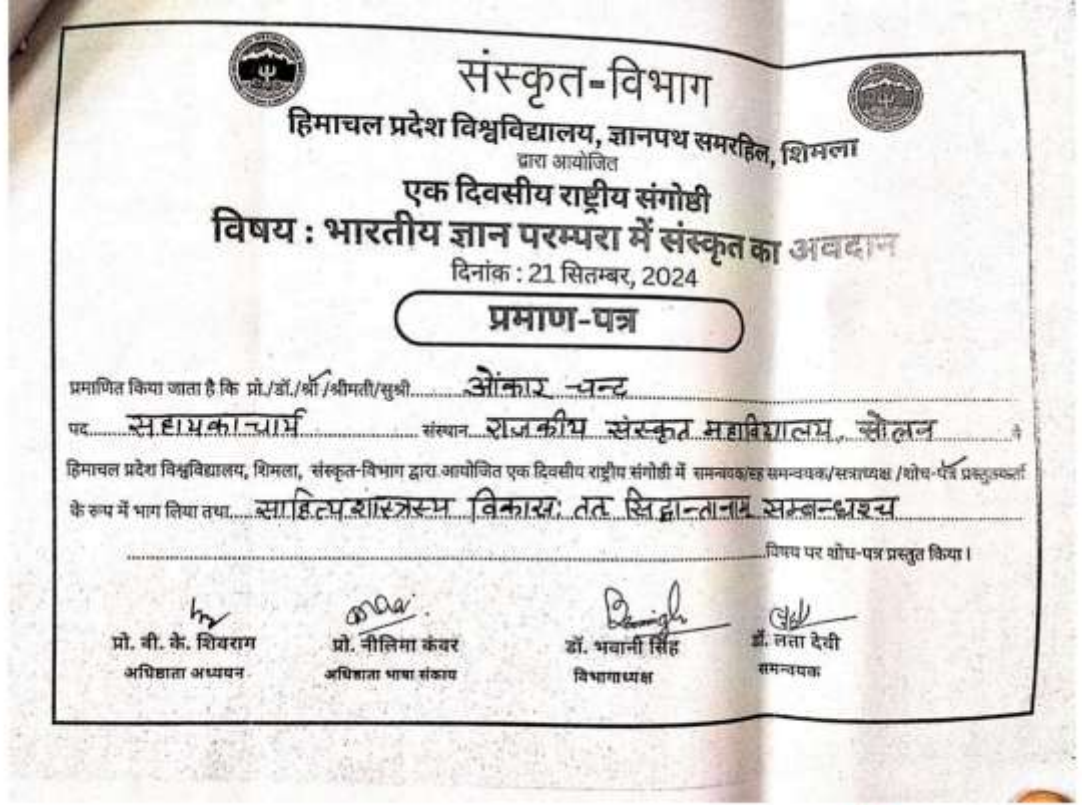 संस्कृत-विभाग
हिमाचल प्रदेश विश्वविद्यालय, ज्ञानपथ समरहिल, शिमला
द्वारा आयोजित
एक दिवसीय राष्ट्रीय संगोष्ठी
विषय : भारतीय ज्ञान परम्परा में संस्कृत का अवदान
दिनांक : 21 सितम्बर, 2024
प्रमाण-पत्र
प्रमाणित किया जाता है कि प्रो./डॉ./श्री/श्रीमती/सुश्री ओंकार चन्द
पद सहायकाचार्य संस्थान राजकीय संस्कृत महाविद्यालय, सोलन ने
हिमाचल प्रदेश विश्वविद्यालय, शिमला, संस्कृत-विभाग द्वारा आयोजित एक दिवसीय राष्ट्रीय संगोष्ठी में समन्वयक/सह समन्वयक/सत्राध्यक्ष /शोध-पत्र प्रस्तुतकर्ता
के रूप में भाग लिया तथा साहित्यशास्त्रस्य विकासः तत् सिद्धान्तानाम् सम्बन्धश्च
विषय पर शोध-पत्र प्रस्तुत किया।
प्रो. बी. के. शिवराम प्रो. नीलिमा कंवर डॉ. भवानी सिंह डॉ. लता देवी
अधिष्ठाता अध्ययन अधिष्ठाता भाषा संकाय विभागाध्यक्ष समन्वयक